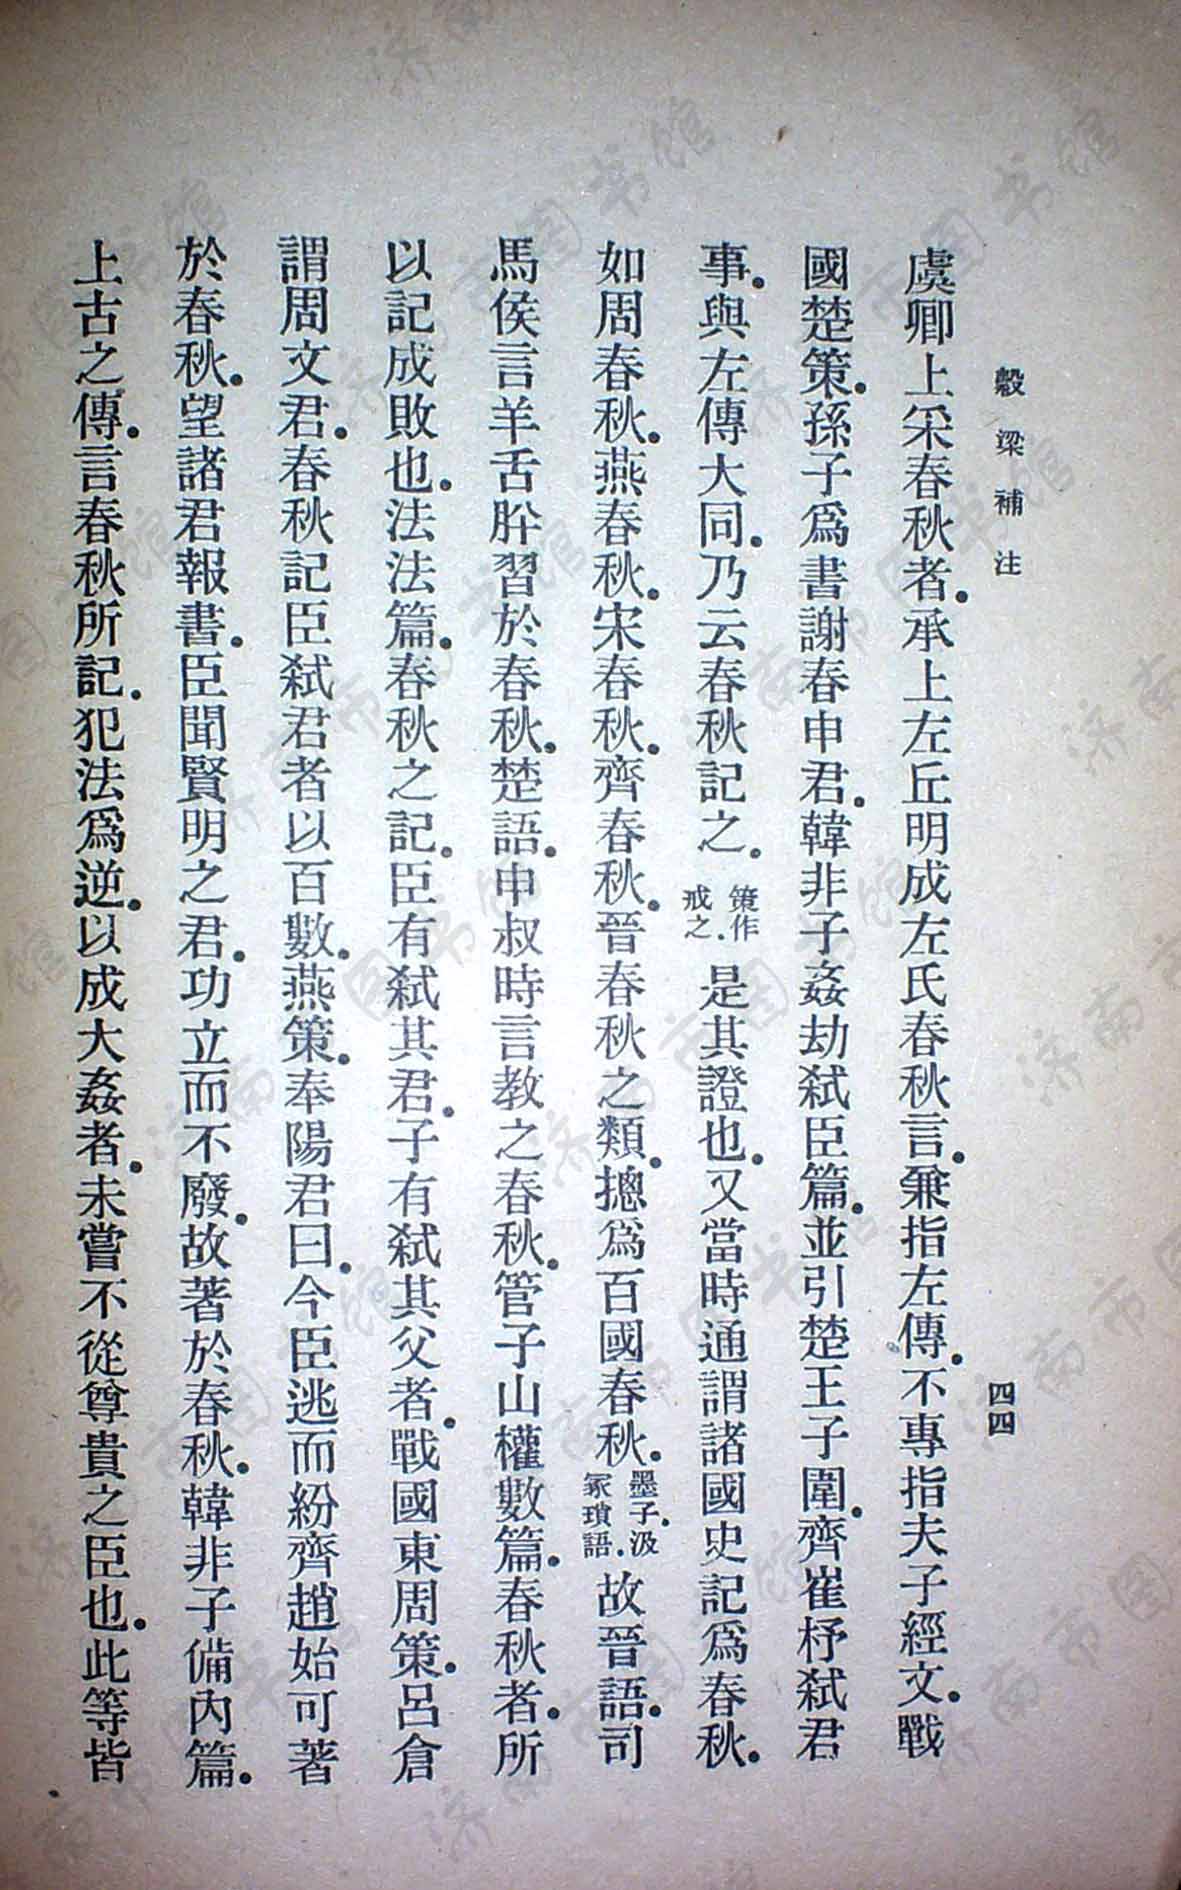 穀梁補注
四四
虞卿上采春秋者.承上左丘明成左氏春秋言.兼指左傳.不專指夫子經文.戰
國楚策.孫子爲書謝春申君.韓非子姦劫弒臣篇.並引楚王子圍.齊崔杼弒君
事.與左傳大同.乃云春秋記之.策作戒之.是其證也.又當時通謂諸國史記爲春秋.
如周春秋.燕春秋.宋春秋.齊春秋.晉春秋之類.摠爲百國春秋.墨子.汲冢瑣語.故晉語.司
馬侯言羊舌肸習於春秋.楚語.申叔時言敎之春秋.管子山權數篇.春秋者.所
以記成敗也.法法篇.春秋之記.臣有弒其君.子有弒其父者.戰國東周策.呂倉
謂周文君.春秋記臣弒君者以百數.燕策.奉陽君曰.今臣逃而紛齊趙始可著
於春秋.望諸君報書.臣聞賢明之君.功立而不廢.故著於春秋.韓非子備內篇.
上古之傳.言春秋所記.犯法爲逆.以成大姦者.未嘗不從尊貴之臣也.此等皆
濟南市图书馆